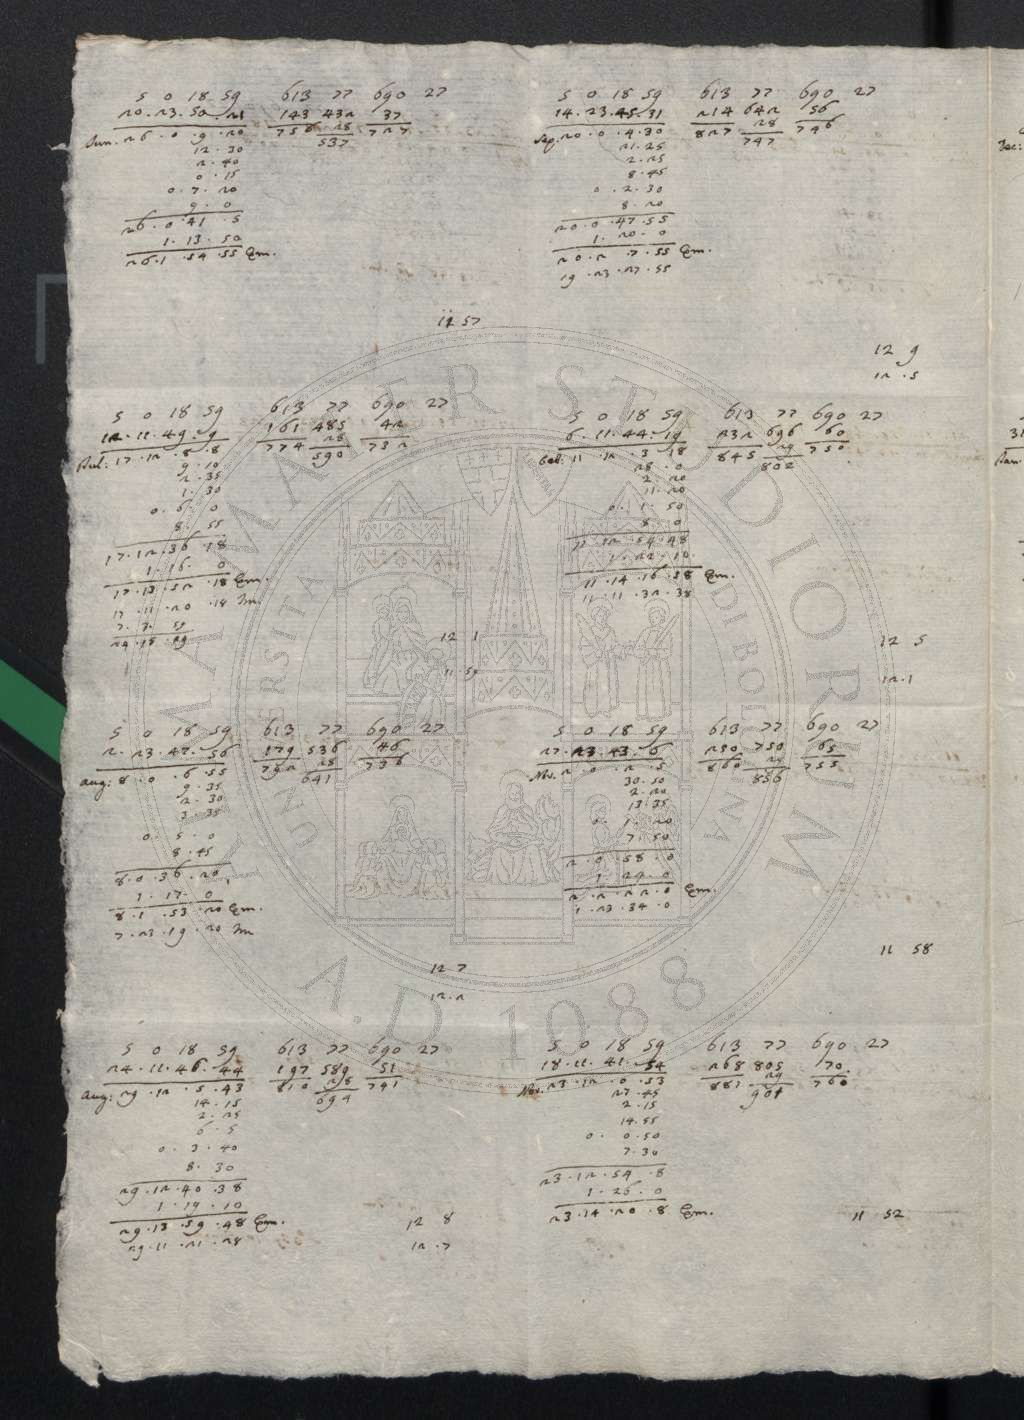 5 0 18 59 613 77 690 27
20.23.50.21 143 432 37
Iun. 26.0.9.20 756 28 727
537
12.30
2.40
0.15
0.7.20
9.0
26.0.41.5
1.13.50
26.1.54.55 Em.
12 57
5 0 18 59 613 77 690 27
12.11.49.9 161 485 42
Iul: 17.12.8.8 774 28 732
590
9.10
2.35
1.30
0.6.0
8.55
17.12.36.18
1.16.0
17.13.52.18 Em.
17.11.20.18 In.
7.3.59
12 1
11.59
5 0 18 59 613 77 690 27
2.23.47.56 179 536 46
Aug: 8.0.6.55 792 28 736
641
9.35
2.30
3.35
0.5.0
8.45
8.0.36.20
1.17.0
8.1.53.20 Em.
7.23.19.20 In
12 7
12.2
5 0 18 59 613 77 690 27
24.11.46.44 197 589 51
Aug: 29.12.5.43 810 28 741
694
14.15
2.25
6.5
0.3.40
8.30
29.12.40.38
1.19.10
29.13.59.48 Em.
29.11.21.28
12 8
12.7
5 0 18 59 613 77 690 27
14.23.45.31 214 642 56
Sep. 20.0.4.30 827 28 746
747
21.25
2.25
8.45
0.2.30
8.20
20.0.47.55
1.20.0
20.2.7.55 Em.
19.23.27.55
12 9
12.5
5 0 18 59 613 77 690 27
6.11.44.19 232 696 60
Oct: 11.12.3.18 845 29 750
802
28.0
2.20
11.20
0.1.50
8.0
11.12.54.48
1.22.10
11.14.16.58 Em.
11.11.32.38
12 5
12.1
5 0 18 59 613 77 690 27
27.23.43.6 250 750 65
Nov. 2.0.2.5 860 29 755
856
30.50
2.20
13.35
0.1.20
7.50
2.0.58.0
1.24.0
2.2.22.0 Em.
1.23.34.0
11 58
5 0 18 59 613 77 690 27
18.11.41.54 268 805 70
Nov. 23.12.0.53 881 29 760
901
27.45
2.15
14.55
0.0.50
7.30
23.12.54.8
1.26.0
23.14.20.8 Em.
11 52
Dec:
31
Ian.
ALMA MATER STUDIORUM
UNIVERSITÀ DI BOLOGNA
A.D. 1088